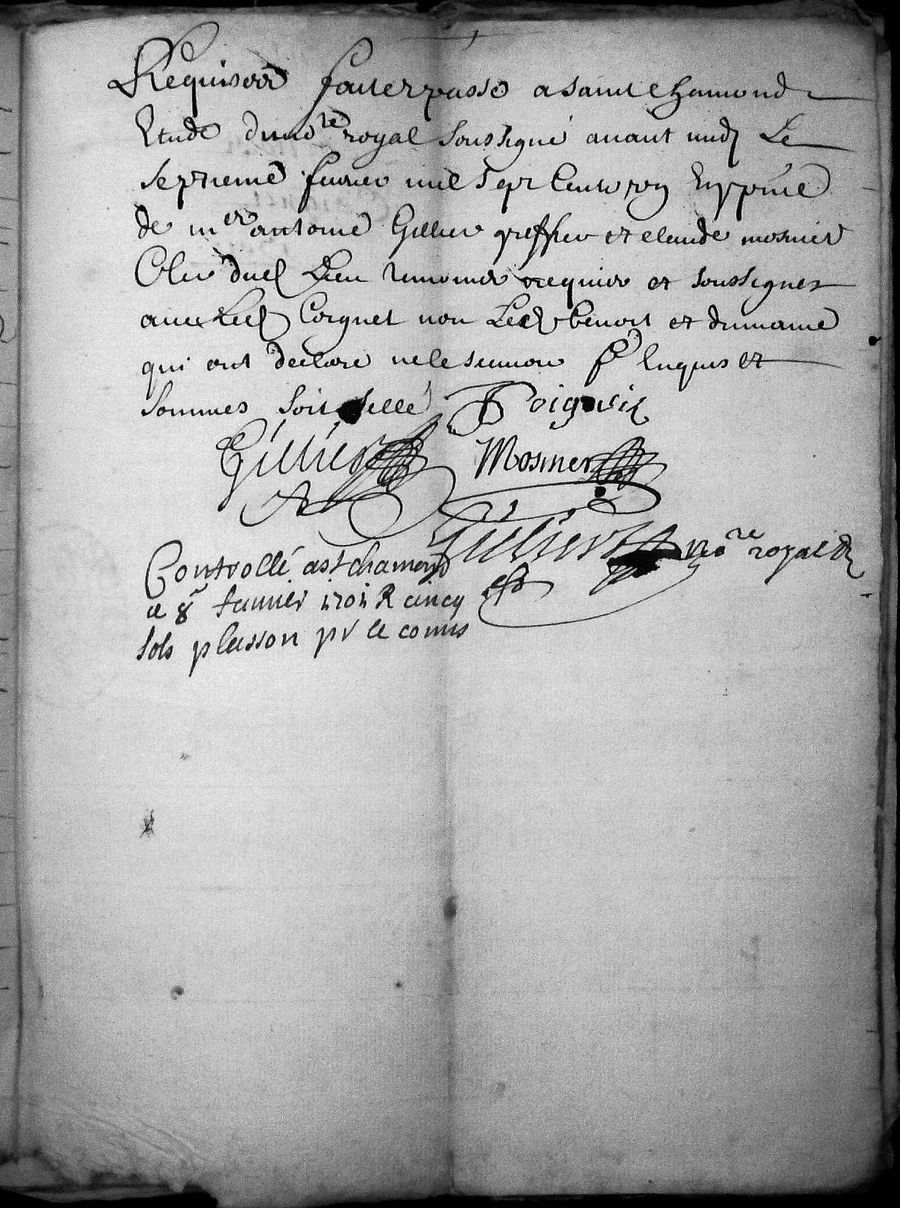 Requisoire fait et passé a saint chamond
Etude du no.re royal soussigné avant midy Le
septieme fevrier mil sept cent et un En pnce
de me antoine Gillier greffier et claude mosnier
Clerc dud Lieu temoins requis et soussignes
avec Led Coignet non Led benoit et dumaine
qui ont declaré ne le scavoir fe Enquis et
sommes soit sellé Coignet
Gillier Mosnier
Gillier no.re royal
Controllé a st chamond
le 8e R cincq
sols plasson pr le comis